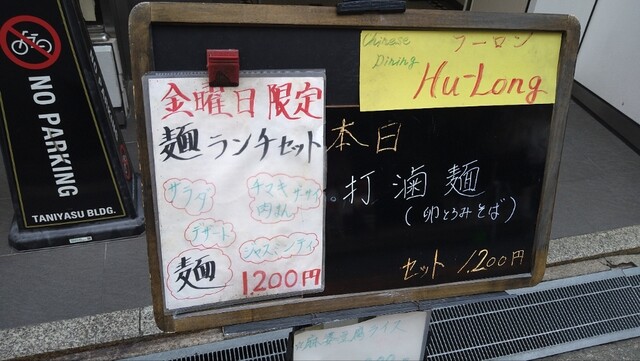 NO PARKING
TANIYASU BLDG.
金曜日限定
麺ランチセット
サラダ
チマキ ザーサイ
肉まん
デザート
ジャスミンティ
麺
1200円
Chinese
Dining
フーロン
Hu-Long
本日
打滷麺
(卵とろみそば)
セット 1.200円
麻婆豆腐ライス